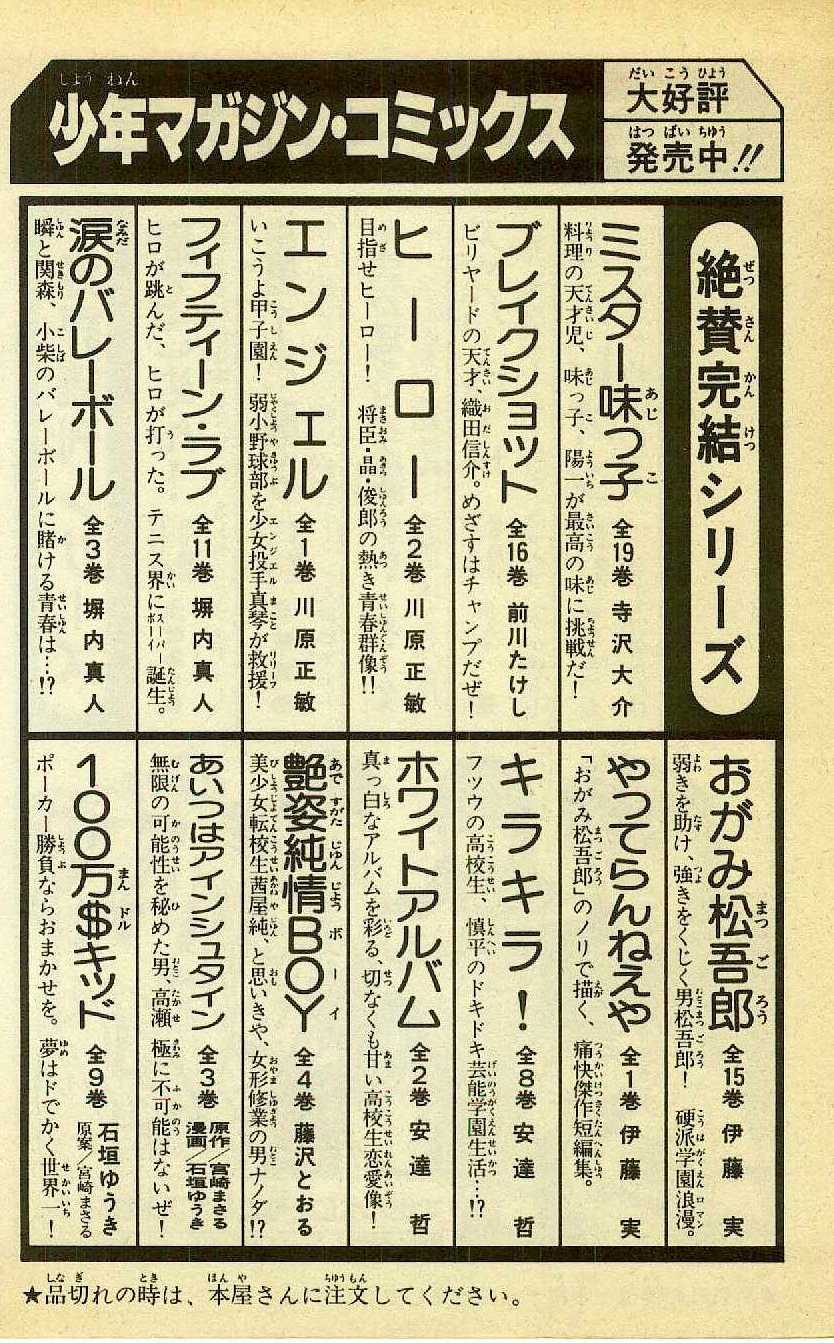 少年マガジン・コミックス
大好評
発売中!!
絶賛完結シリーズ
ミスター味っ子 全19巻 寺沢大介
料理の天才児、味っ子、陽一が最高の味に挑戦だ!
ブレイクショット 全16巻 前川たけし
ビリヤードの天才、織田信介。めざすはチャンプだぜ!
ヒーロー 全2巻 川原正敏
目指せヒーロー! 将臣・晶・俊郎の熱き青春群像!!
エンジェル 全1巻 川原正敏
いこうよ甲子園! 弱小野球部を少女投手真琴が救援!
フィフティーン・ラブ 全11巻 塀内真人
ヒロが跳んだ、ヒロが打った。テニス界にスーパーボーイ誕生。
涙のバレーボール 全3巻 塀内真人
瞬と関森、小柴のバレーボールに賭ける青春は…!?
おがみ松吾郎 全15巻 伊藤実
弱きを助け、強きをくじく男松吾郎! 硬派学園浪漫。
やってらんねえや 全1巻 伊藤実
「おがみ松吾郎」のノリで描く、痛快傑作短編集。
キラキラ! 全8巻 安達哲
フツウの高校生、慎平のドキドキ芸能学園生活…!?
ホワイトアルバム 全2巻 安達哲
真っ白なアルバムを彩る、切なくも甘い高校生恋愛像!
艶姿純情BOY 全4巻 藤沢とおる
美少女転校生茜屋純、と思いきや、女形修業の男ナノダ!?
あいつはアインシュタイン 全3巻 原作/宮崎まさる 漫画/石垣ゆうき
無限の可能性を秘めた男、高瀬 極に不可能はないぜ!
100万$キッド 全9巻 石垣ゆうき 原案/宮崎まさる
ポーカー勝負ならおまかせを。夢はドでかく世界一!
★品切れの時は、本屋さんに注文してください。